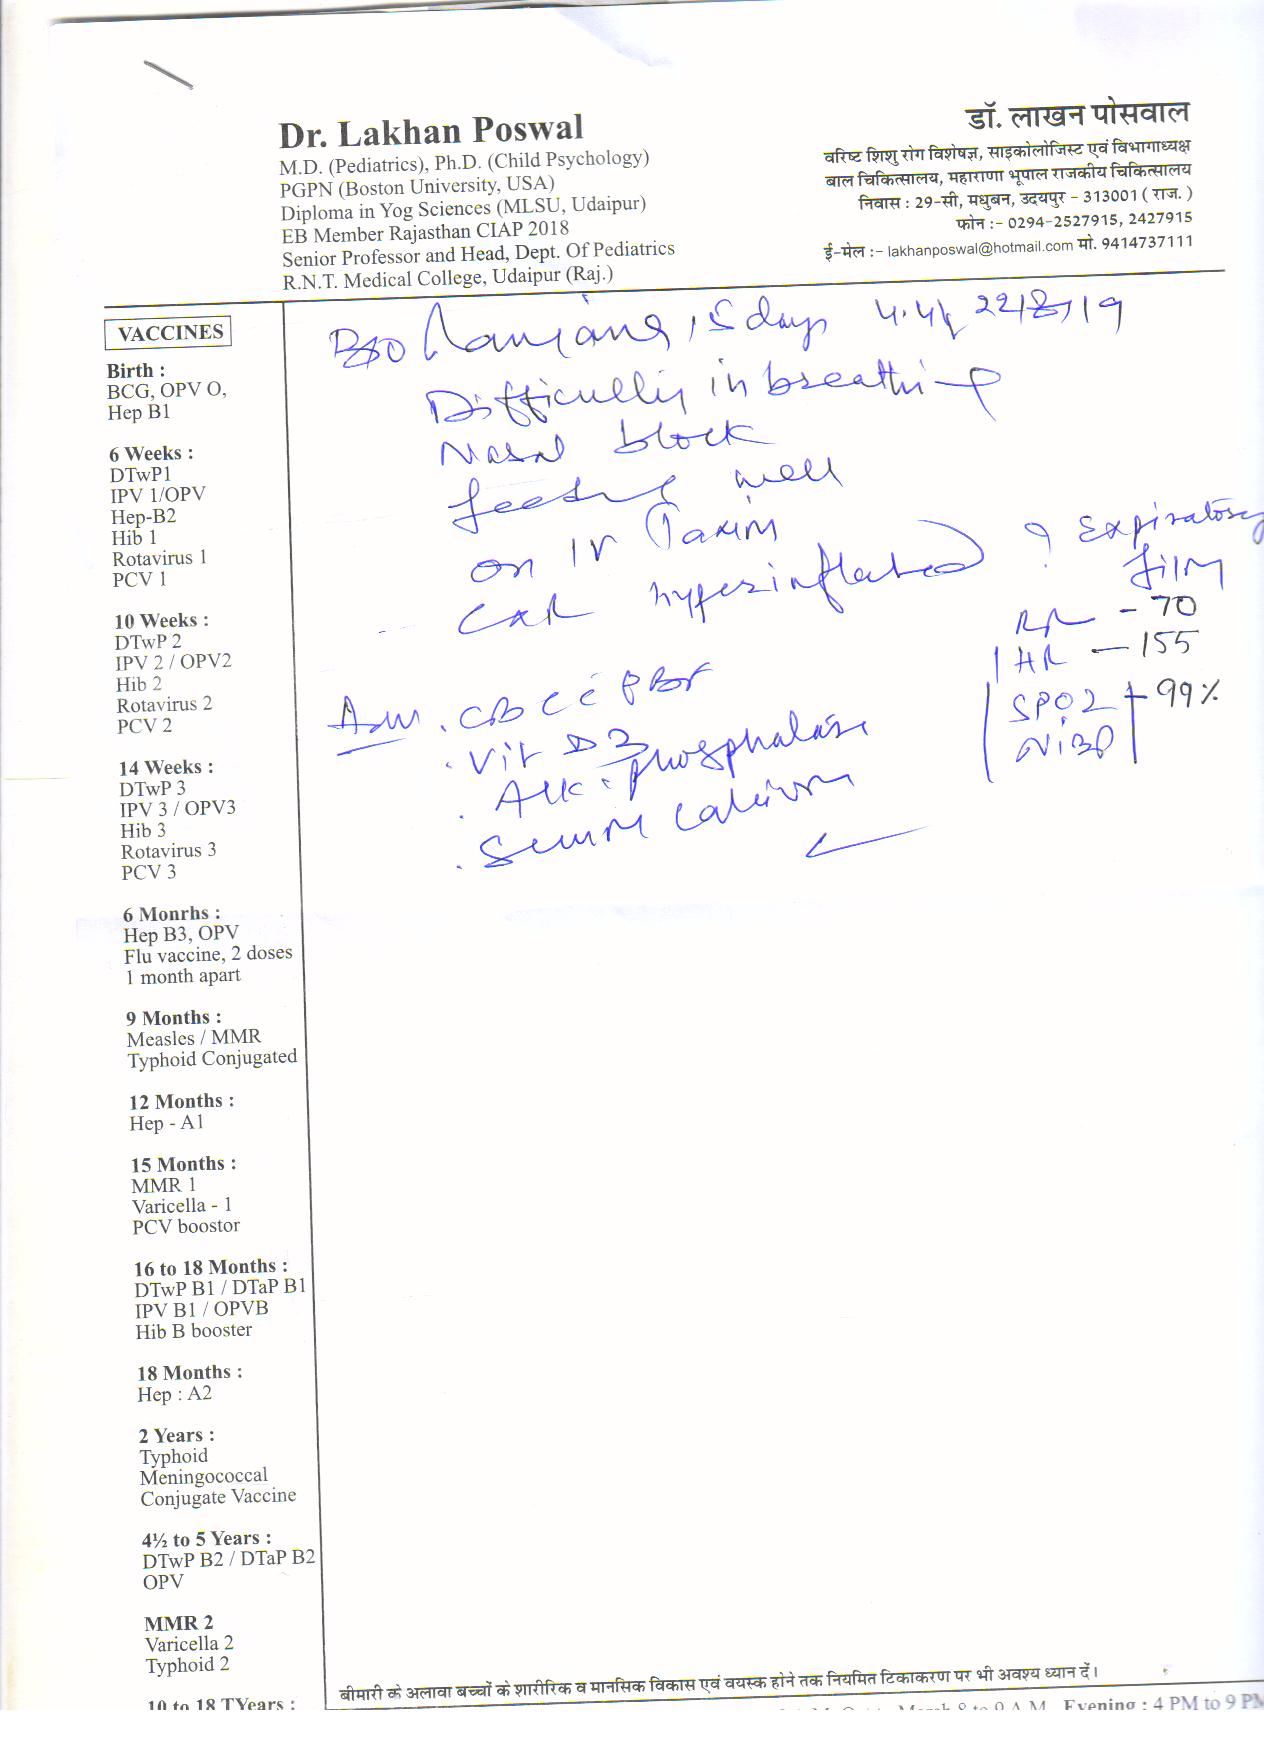 Dr. Lakhan Poswal
M.D. (Pediatrics), Ph.D. (Child Psychology)
PGPN (Boston University, USA)
Diploma in Yog Sciences (MLSU, Udaipur)
EB Member Rajasthan CIAP 2018
Senior Professor and Head, Dept. Of Pediatrics
R.N.T. Medical College, Udaipur (Raj.)
डॉ. लाखन पोसवाल
वरिष्ट शिशु रोग विशेषज्ञ, साइकोलोजिस्ट एवं विभागाध्यक्ष
बाल चिकित्सालय, महाराणा भूपाल राजकीय चिकित्सालय
निवास : 29-सी, मधुबन, उदयपुर - 313001 ( राज. )
फोन :- 0294-2527915, 2427915
ई-मेल :- lakhanposwal@hotmail.com मो. 9414737111
VACCINES
Birth :
BCG, OPV O,
Hep B1
6 Weeks :
DTwP1
IPV 1/OPV
Hep-B2
Hib 1
Rotavirus 1
PCV 1
10 Weeks :
DTwP 2
IPV 2 / OPV2
Hib 2
Rotavirus 2
PCV 2
14 Weeks :
DTwP 3
IPV 3 / OPV3
Hib 3
Rotavirus 3
PCV 3
6 Monrhs :
Hep B3, OPV
Flu vaccine, 2 doses
1 month apart
9 Months :
Measles / MMR
Typhoid Conjugated
12 Months :
Hep - A1
15 Months :
MMR 1
Varicella - 1
PCV boostor
16 to 18 Months :
DTwP B1 / DTaP B1
IPV B1 / OPVB
Hib B booster
18 Months :
Hep : A2
2 Years :
Typhoid
Meningococcal
Conjugate Vaccine
4½ to 5 Years :
DTwP B2 / DTaP B2
OPV
MMR 2
Varicella 2
Typhoid 2
10 to 18 TYears :
B/O days 22/8/19
Difficulty in breathing
Nasal block
feeding well
on IV Taxim
CXR hyperinflated ? Expiratory
film
RR - 70
HR - 155
SPO2 - 99%
NiBP
Adv . CBC c̄ PBF
. Vit D3
. Alk. phosphatase
. Serum Calcium
बीमारी के अलावा बच्चों के शारीरिक व मानसिक विकास एवं वयस्क होने तक नियमित टिकाकरण पर भी अवश्य ध्यान दें।
March 8 to 9 A.M. Evening : 4 PM to 9 PM